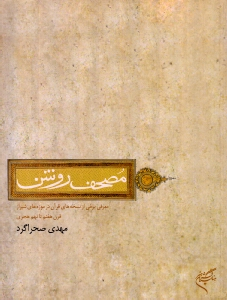 مصحف روشن
معرفی برخی از نسخه‌های قرآن در موزه‌های شیراز
قرن هفتم تا نهم هجری
مهدی صحراگرد